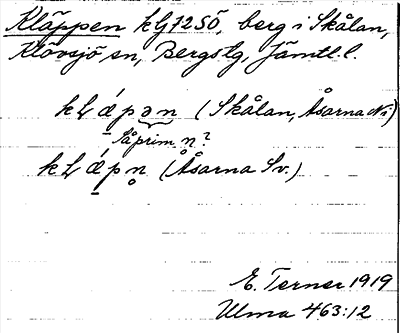 Kläppen kLG7250, berg i Skålan,
Klövsjö sn, Bergs tg, Jämtl. l.
kⱢ ǻ p ə n (Skålan, Åsarna N:)
Så prim. n̥?
kⱢ ǻ p n̥ (Åsarna Sv.)
E. Terner 1919
Ulma 463:12